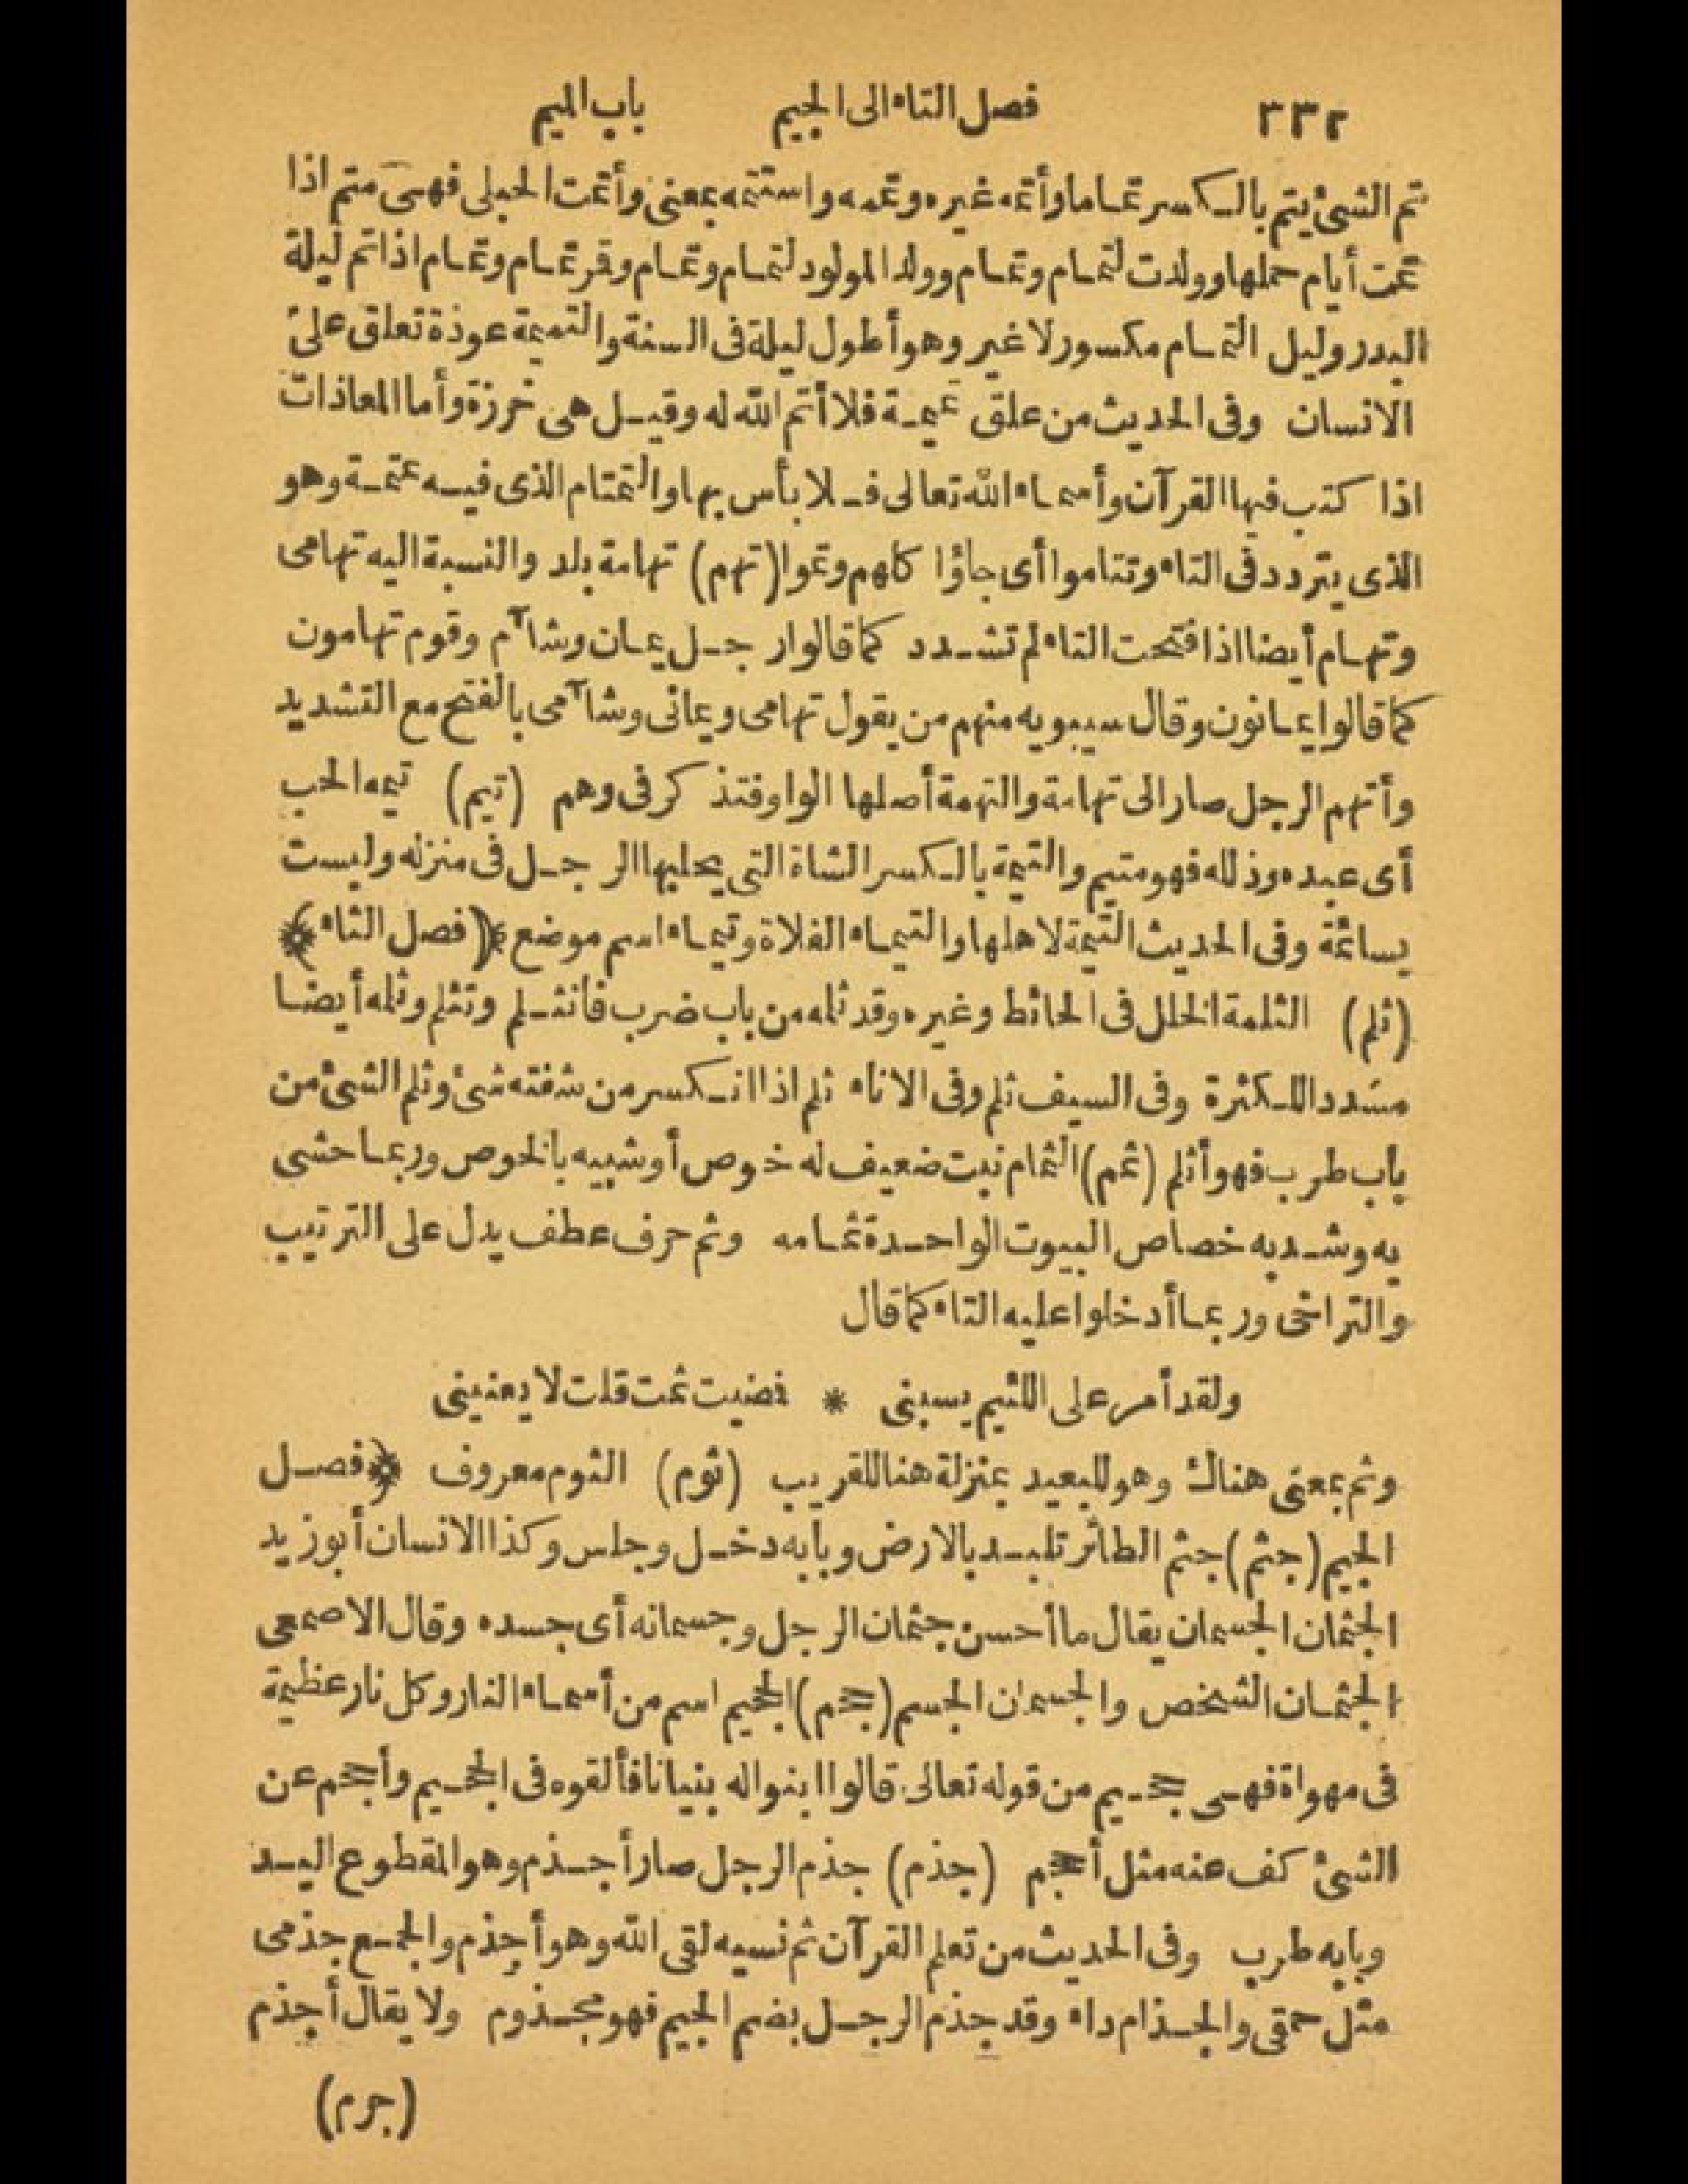 ٣٣٢ فصل التاء الى الجيم باب الميم
تم الشئ يتم بالكسر تماما وأتمه غيره وتممه واستتمه بمعنى وأتمت الحبلى فهى متم اذا
تمت أيام حملها وولدت لتمام وتمام وولد المولود لتمام وتمام وقمر تمام وتمام اذا تم ليلة
البدر وليل التمام مكسور لا غير وهو أطول ليلة فى السنة والتميمة عوذة تعلق على
الانسان وفى الحديث من علق تميمة فلا أتم الله له وقيل هى خرزة وأما المعاذات
اذا كتب فيها القرآن وأسماء الله تعالى فلا بأس بها والتمتام الذى فيه تمتمة وهو
الذى يتردد فى التاء وتتاموا أى جاؤا كلهم وتموا (تهم) تهامة بلد والنسبة اليه تهامى
وتهام أيضا اذا فتحت التاء لم تشدد كما قالوا رجل يمان وشاآم وقوم تهامون
كما قالوا يمانون وقال سيبويه منهم من يقول تهامى ويمانى وشاآمى بالفتح مع التشديد
وأتهم الرجل صار الى تهامة والتهمة أصلها الواو فتذكر فى وهم (تيم) تيمه الحب
أى عبده وذلله فهو متيم والتيمة بالكسر الشاة التى يحلبها الرجل فى منزله وليست
بسائمة وفى الحديث التيمة لاهلها والتيماء الفلاة وتيماء اسم موضع ﴿فصل الثاء﴾
(ثلم) الثلمة الخلل فى الحائط وغيره وقد ثلمه من باب ضرب فانثلم وتثلم وثلمه أيضا
مشددا للكثرة وفى السيف ثلم وفى الاناء ثلم اذا انكسر من شفته شئ وثلم الشئ من
باب طرب فهو أثلم (ثمم) الثمام نبت ضعيف له خوص أو شبيه بالخوص وربما حشى
به وشد به خصاص البيوت الواحدة ثمامه وثم حرف عطف يدل على الترتيب
والتراخى وربما أدخلوا عليه التاء كما قال
ولقد أمر على اللئيم يسبنى * فمضيت ثمت قلت لا يعنينى
وثم بمعنى هناك وهو للبعيد بمنزلة هنا للقريب (ثوم) الثوم معروف ﴿فصل
الجيم (جثم) جثم الطائر تلبد بالارض وبابه دخل وجلس وكذا الانسان أبو زيد
الجثمان الجسمان يقال ما أحسن جثمان الرجل وجسمانه أى جسده وقال الاصمعى
الجثمان الشخص والجسمان الجسم (جحم) الجحيم اسم من أسماء النار وكل نار عظيمة
فى مهواة فهى جحيم من قوله تعالى قالوا ابنوا له بنيانا فألقوه فى الجحيم وأجحم عن
الشئ كف عنه مثل أحجم (جذم) جذم الرجل صار أجذم وهو المقطوع اليد
وبابه طرب وفى الحديث من تعلم القرآن ثم نسيه لقى الله وهو أجذم والجمع جذمى
مثل حمقى والجذام داء وقد جذم الرجل بضم الجيم فهو مجذوم ولا يقال أجذم
(جرم)